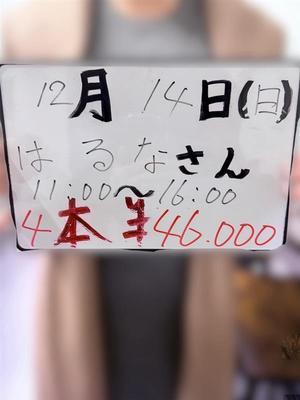 12月 14日(日)
はるなさん
11:00〜16:00
4本 ¥46.000